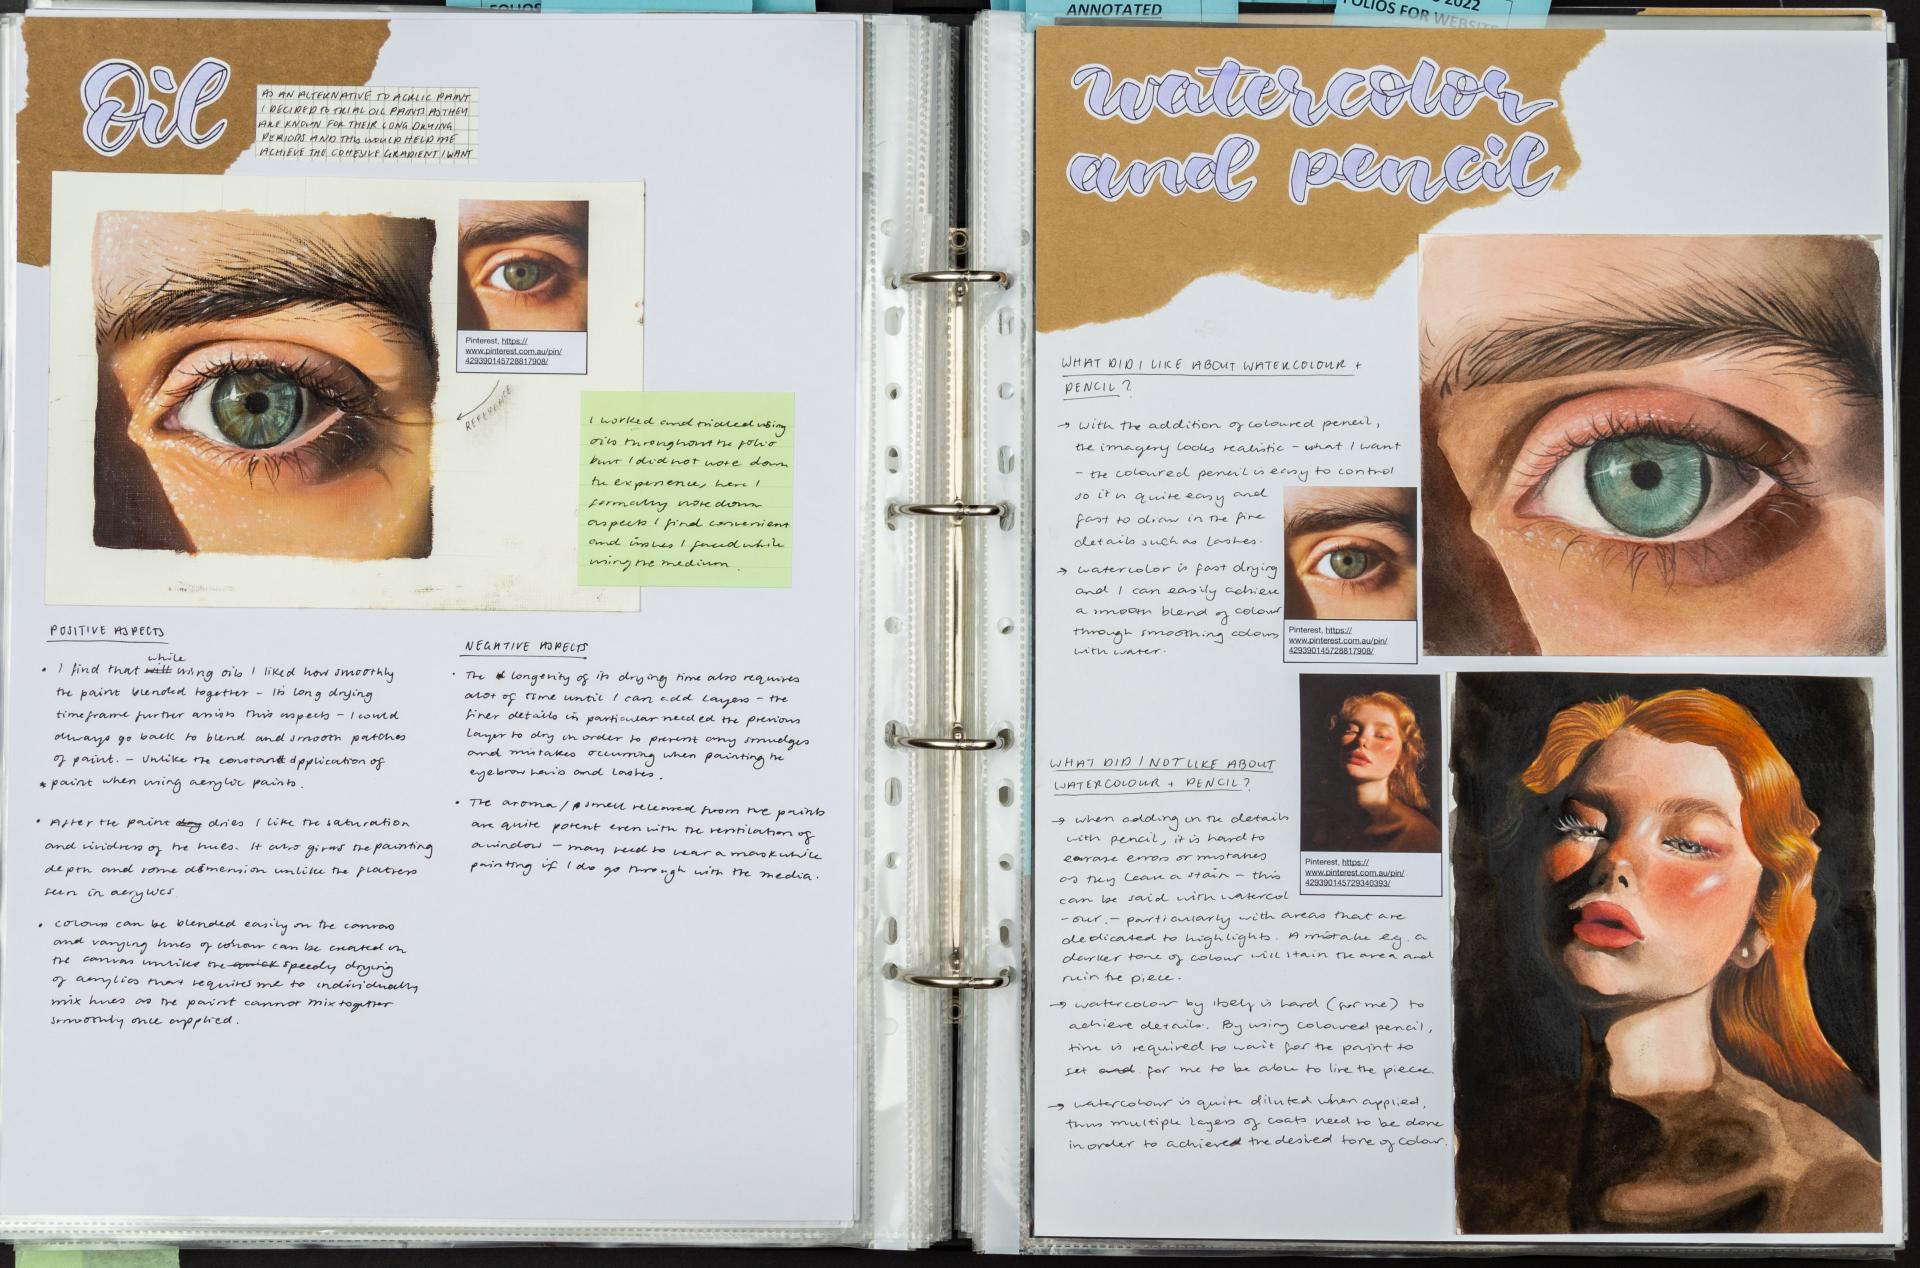 FOLIOS
ANNOTATED
2022
FOLIOS FOR WEBSITE
Oil
AS AN ALTERNATIVE TO ACRLIC PAINT
I DECIDED TO TRIAL OIL PAINTS AS THEY
ARE KNOWN FOR THEIR LONG DRYING
PERIODS AND THIS WOULD HELP ME
ACHIEVE THE COHESIVE GRADIENT I WANT
Pinterest, https://
www.pinterest.com.au/pin/
429390145728817908/
REFERENCE
I worked and trialed using
oils throughout the folio
but I did not note down
the experience, here I
formally note down
aspects I find convenient
and issues I faced while
using the medium.
POSITIVE ASPECTS
while
• I find that using oils I liked how smoothly
the paint blended together - Its long drying
timeframe further assists this aspects - I could
always go back to blend and smooth patches
of paint. - Unlike the constant application of
paint when using acrylic paints.
• After the paint dries I like the saturation
and vividness of the hues. It also gives the painting
depth and some dimension unlike the flatness
seen in acrylics.
• colours can be blended easily on the canvas
and varying hues of colour can be created on
the canvas unlike the quick speedy drying
of acrylics that requires me to individually
mix hues as the paint cannot mix together
smoothly once applied.
NEGATIVE ASPECTS
• The longevity of its drying time also requires
alot of time until I can add layers - the
finer details in particular needed the previous
layer to dry in order to prevent any smudges
and mistakes occurring when painting the
eyebrow hairs and lashes.
• The aroma / smell released from the paints
are quite potent even with the ventilation of
a window - may need to wear a mask while
painting if I do go through with the media.
watercolor
and pencil
WHAT DID I LIKE ABOUT WATERCOLOUR +
PENCIL?
→ with the addition of coloured pencil,
the imagery looks realistic - what I want
- the coloured pencil is easy to control
so it is quite easy and
fast to draw in the fine
details such as lashes.
→ watercolor is fast drying
and I can easily achieve
a smooth blend of colour
through smoothing colours
with water.
Pinterest, https://
www.pinterest.com.au/pin/
429390145728817908/
WHAT DID I NOT LIKE ABOUT
WATERCOLOUR + PENCIL?
→ when adding in the details
with pencil, it is hard to
erase errors or mistakes
as they leave a stain - this
can be said with watercol
-our. - particularly with areas that are
dedicated to highlights. A mistake eg. a
darker tone of colour will stain the area and
ruin the piece.
Pinterest, https://
www.pinterest.com.au/pin/
429390145729340393/
→ watercolour by itself is hard (for me) to
achieve details. By using coloured pencil,
time is required to wait for the paint to
set and for me to be able to line the piece.
→ watercolour is quite diluted when applied,
thus multiple layers of coats need to be done
in order to achieve the desired tone of colour.